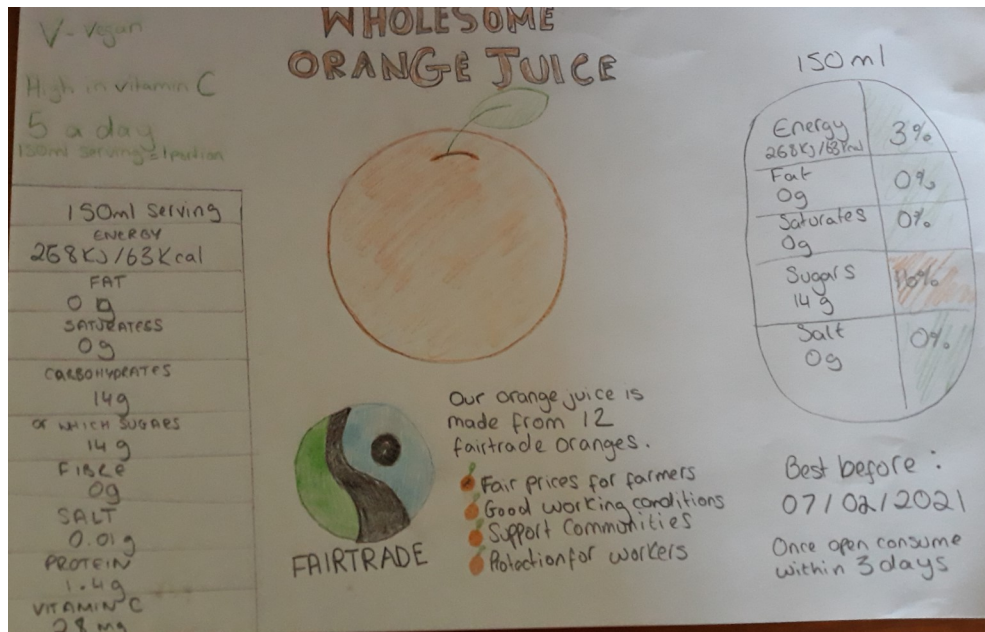 WHOLESOME
ORANGE JUICE
V - Vegan
High in vitamin C
5 a day
150ml serving = 1 portion
150ml Serving
ENERGY
268KJ/63Kcal
FAT
0g
SATURATESS
0g
CARBOHYDRATES
14g
OF WHICH SUGARS
14g
FIBRE
0g
SALT
0.01g
PROTEIN
1.4g
VITAMIN C
28 mg
FAIRTRADE
Our orange juice is
made from 12
fairtrade oranges.
Fair prices for farmers
Good working conditions
Support Communities
Protection for workers
150ml
Energy 3%
268KJ/63Kcal
Fat 0%
0g
Saturates 0%
0g
Sugars 16%
14g
Salt 0%
0g
Best before :
07/02/2021
Once open consume
within 3 days